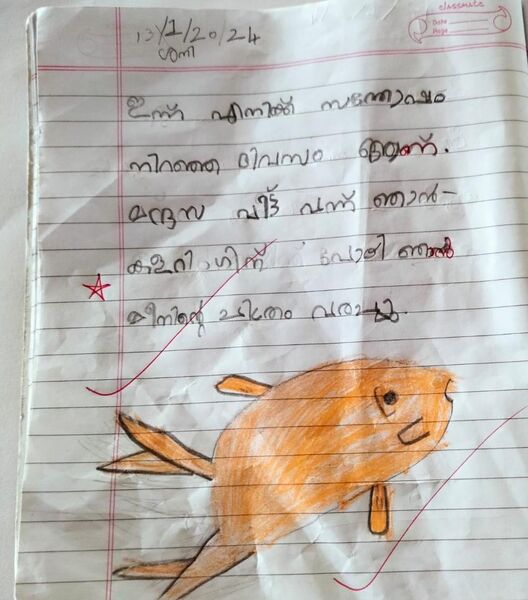 classmate
Date
Page
13/1/2024
ശനി
ഇന്ന് എനിക്ക് സന്തോഷം
നിറഞ്ഞ ദിവസം ആണ്.
മദ്രസ വിട്ട് വന്ന് ഞാൻ
കളറിംഗിന് പോയി ഞാൻ
മീനിന്റെ ചിത്രം വരച്ചു.